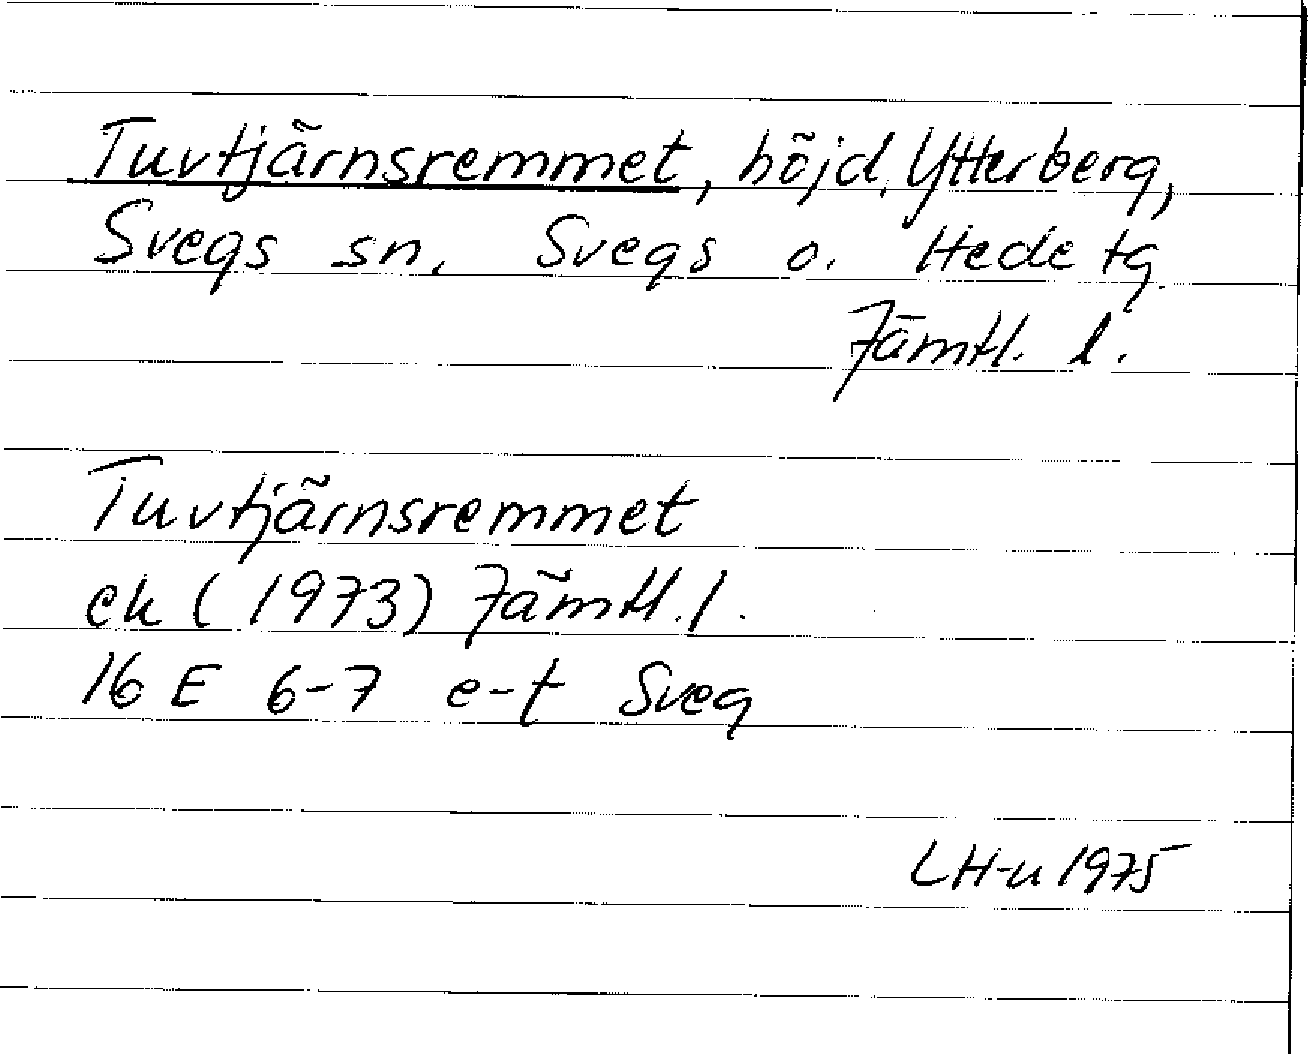 Tuvtjärnsremmet, höjd, Ytterberg,
Svegs sn. Svegs o. Hede tg
Jämtl. l.
Tuvtjärnsremmet
ek (1973) Jämtl. l.
16 E 6-7 e-f Sveg
LH-n 1975